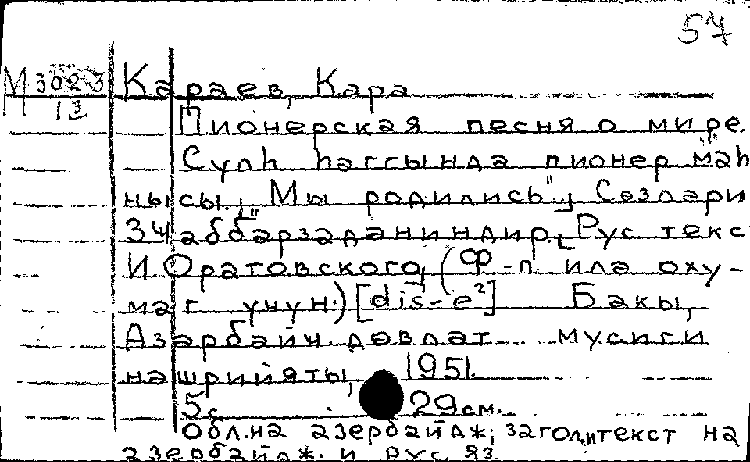 57
М 3023/13 Караев, Кара
Пионерская песня о мире.
Сулһ һаггында пионер маһ-
 нысы. „Мы родились"... Сөзләри
З. Ҹаббарзаданиндир, Рус текс
И. Оратовского, (Ф-п. илә оху-
маг үчүн.) [dis-e²] Бакы,
Азәрбајҹ. дөвләт мусиги
нәшријјаты, 1951.
5 с. 29 см.
Обл. на азербайдж.; загол. и текст на
азербайдж. и рус. яз.